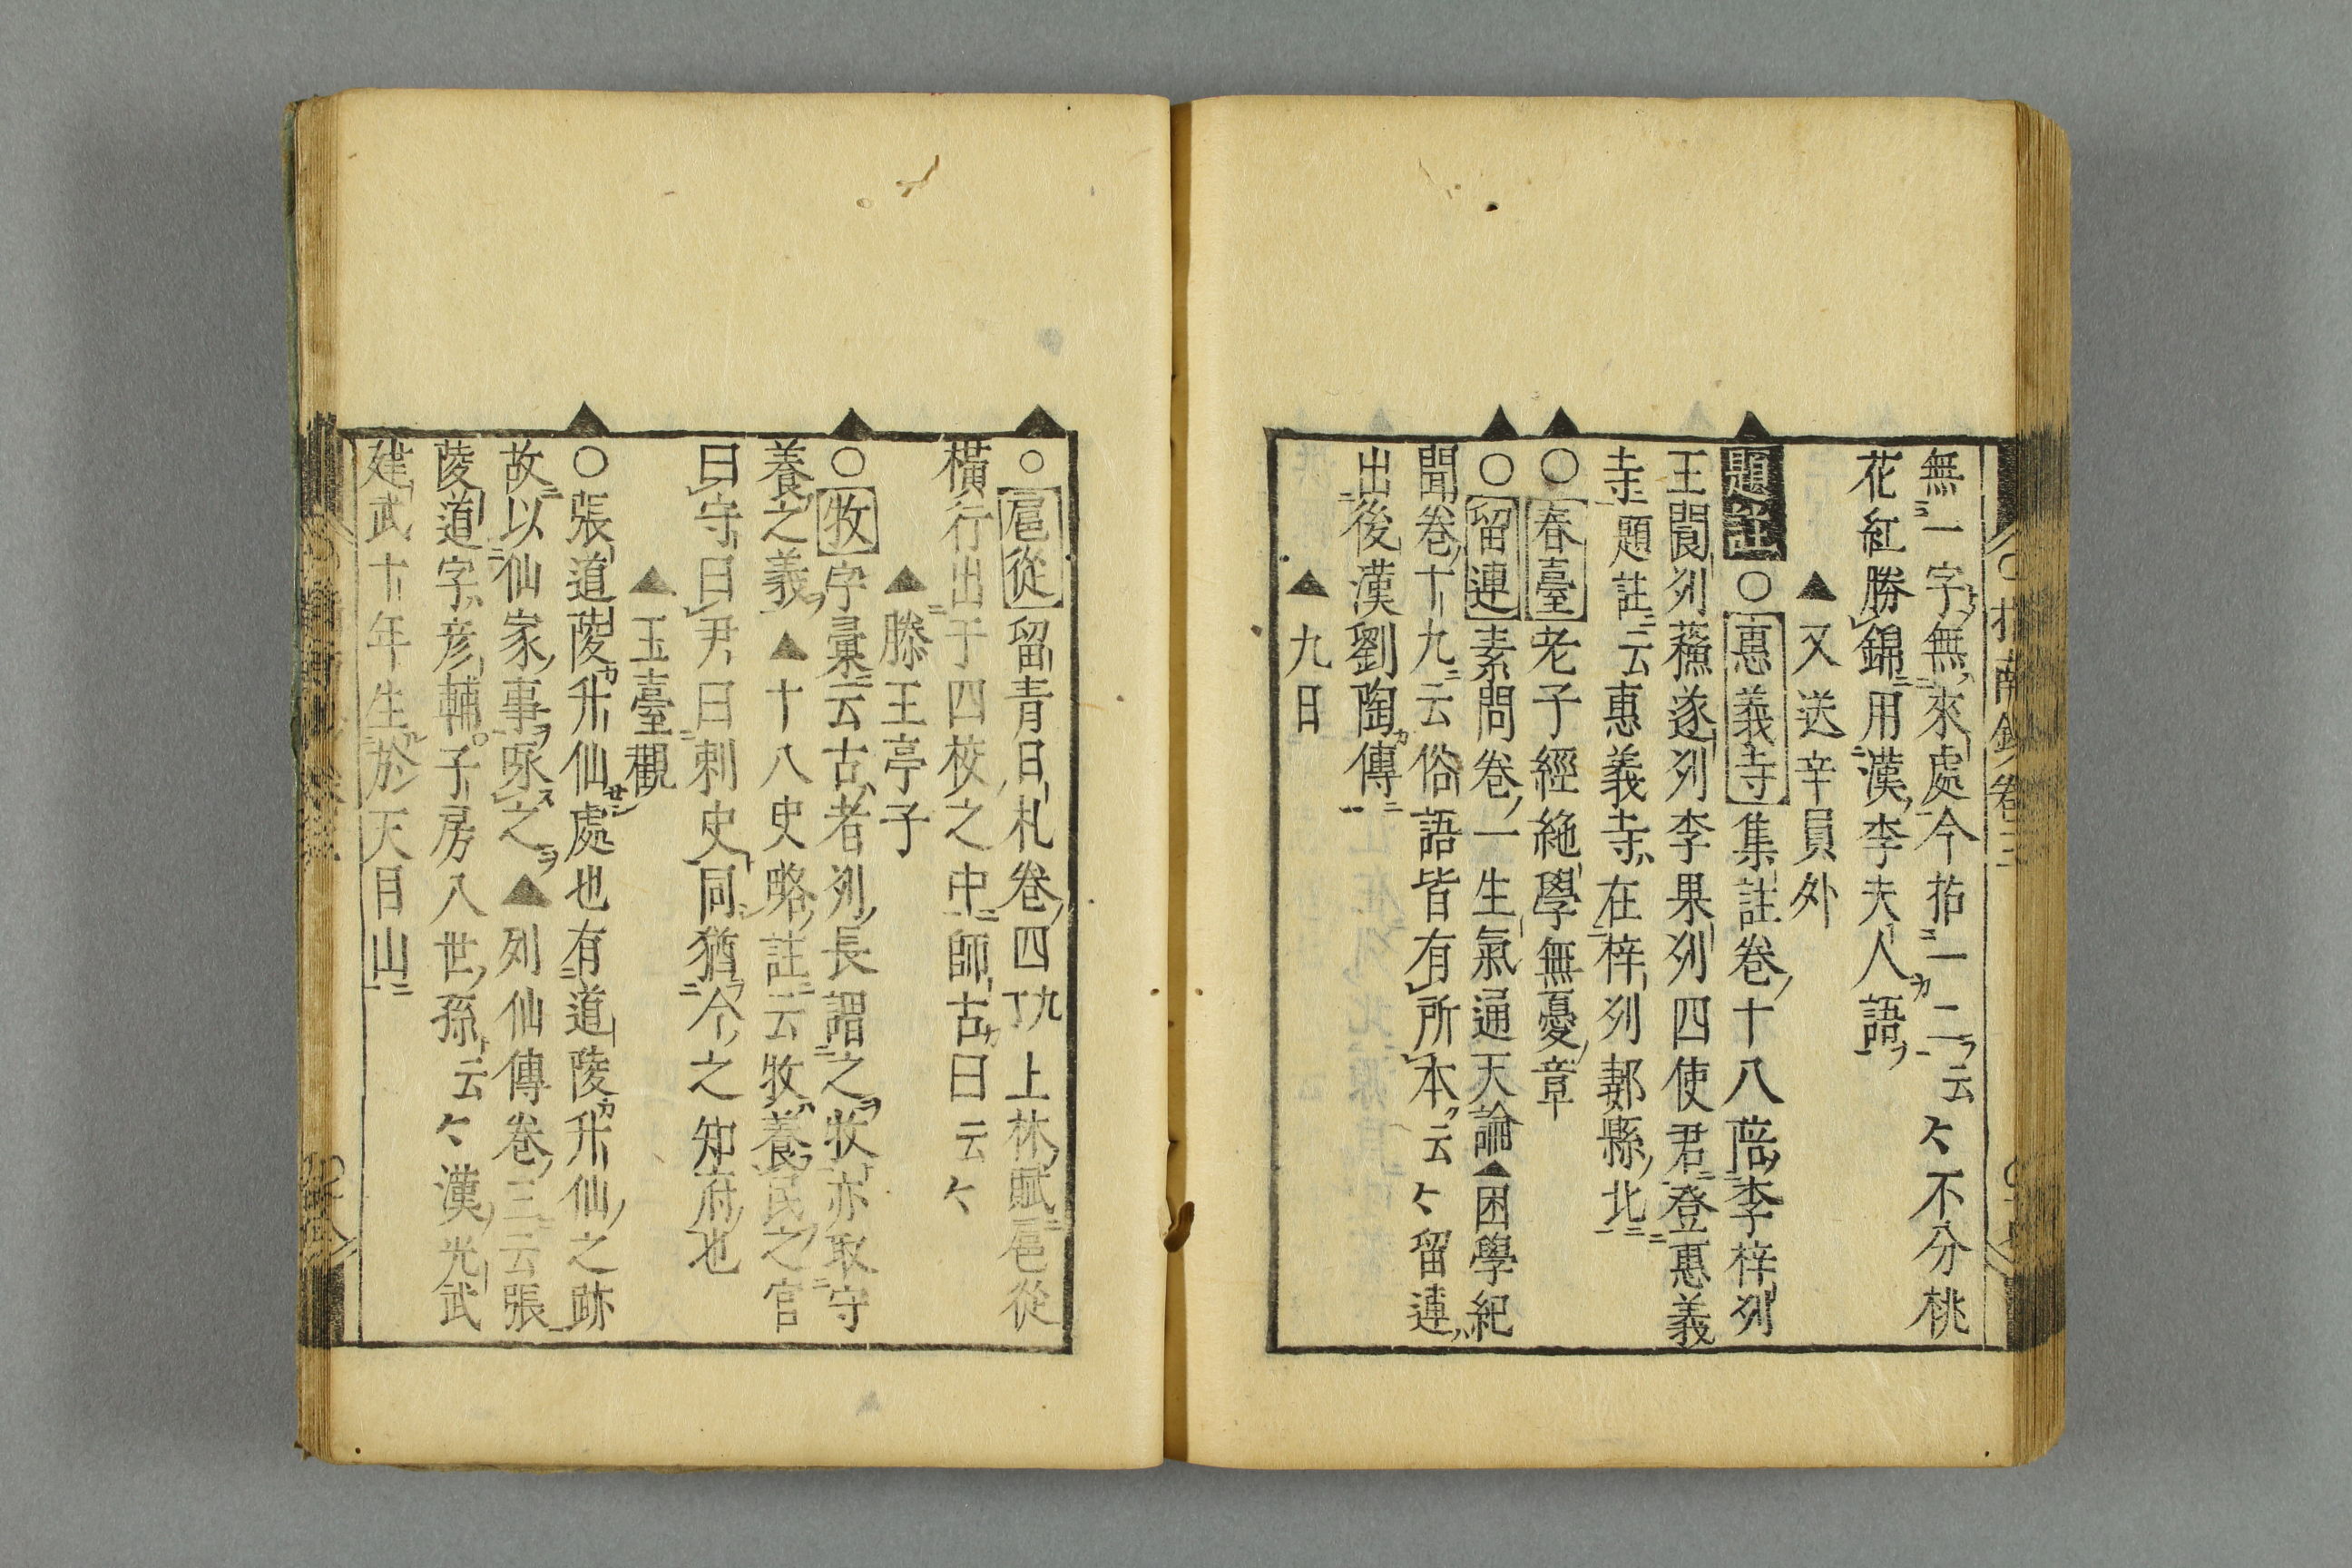 無一字無來處今拈一二云々不分桃
花紅勝錦用漢李夫人語
▲又送辛員外
題註○惠義寺集註卷十八陪李梓刕
王閬刕蘓遂刕李果刕四使君登惠義
寺題註云惠義寺在梓刕郪縣北
○春臺老子經絶學無憂章
○留連素問卷一生氣通天論▲困學紀
聞卷十九云俗語皆有所本云々留連
出後漢劉陶傳
▲九日
○扈從留青日札卷四九丁上林賦扈從
橫行出于四校之中師古曰云々
▲滕王亭子
○牧字彙云古者刕長謂之牧亦取守
養之義▲十八史略註云牧養民之官
曰守曰尹曰刺史同猶今之知府也
▲玉臺觀
○張道陵升仙處也有道陵升仙之跡
故以仙家事咏之▲列仙傳卷三云張
陵道字彦輔子房八世孫云々漢光武
建武十年生於天目山